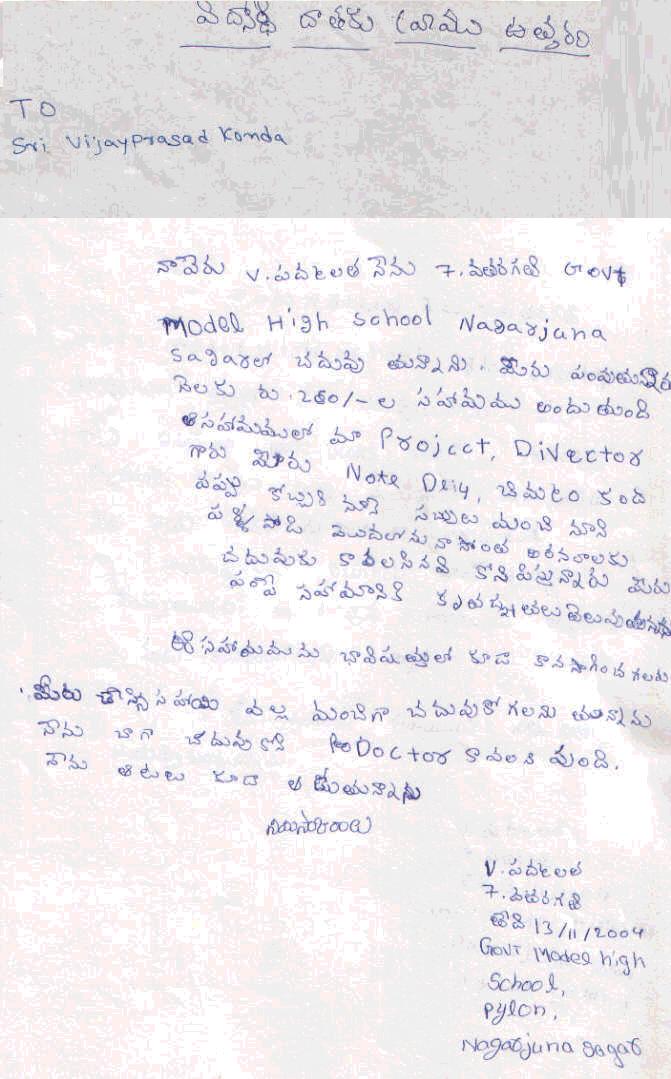 విద్యార్థి దాతకు వ్రాయు ఉత్తరం
TO
Sri Vijayprasad Konda
నాపేరు V. పద్మలత నేను 7. వతరగతి Govt
Model High School Nagarjuna
Sagarలో చదువు తున్నాను. మీరు పంపుతున్న
నెలకు రు. 250/- ల సహాయము అందు తుంది
ఆసహాయములో మా Project, Director
గారు మీరు Note
పప్పు కొబ్బరి నూనె సబ్బులు మంచి నూనె
పళ్ళ పోడి మొదలగును నా సొంత అవసరాలకు
చదువుకు కావలసినవి కొని పిస్తున్నారు మీరు
సహాయానికి కృతజ్ఞతలు తెలుపుతున్నను
ఈ సహాయమును భావిషత్తులో కూడా కొనసాగించ గలరు
మీరు సహాయ వల్ల మంచిగా చదువుకో గలను తున్నాను
నాను బాగా చదువు కొని Doctor కావలని వుంది.
నాను ఆటలు కూడ ఆడుతున్నాను
నమస్కారాలు
V. పద్మలత
7. వతరగతి
తేది 13/11/2004
Govt Model high
School,
pylon,
Nagarjuna Sagar